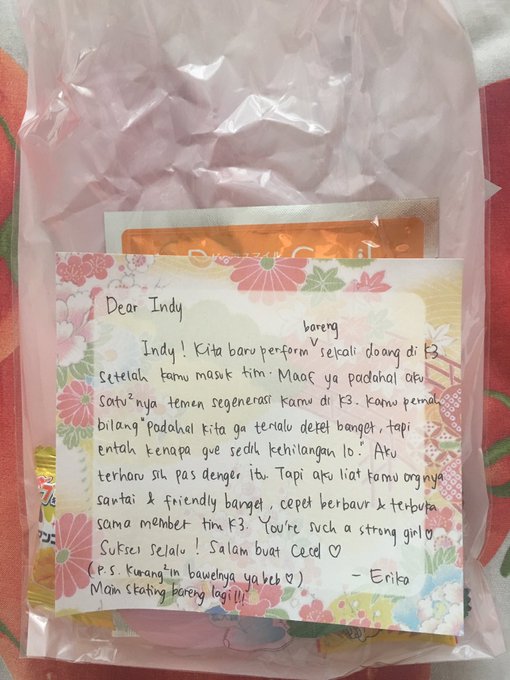 Dear Indy
bareng
Indy! Kita baru perform ˅ sekali doang di K3
setelah kamu masuk tim. Maaf ya padahal aku
satu²nya temen segenerasi kamu di K3. Kamu pernah
bilang "Padahal kita ga terlalu deket banget, tapi
entah kenapa gue sedih kehilangan lo." Aku
terharu sih pas denger itu. Tapi aku liat kamu orgnya
santai & friendly banget, cepet berbaur & terbuka
sama member tim K3. You're such a strong girl ♡
Sukses selalu! Salam buat Cecel ♡
(P.S. Kurang²in bawelnya ya beb ♡) - Erika
Main skating bareng lagi!!!